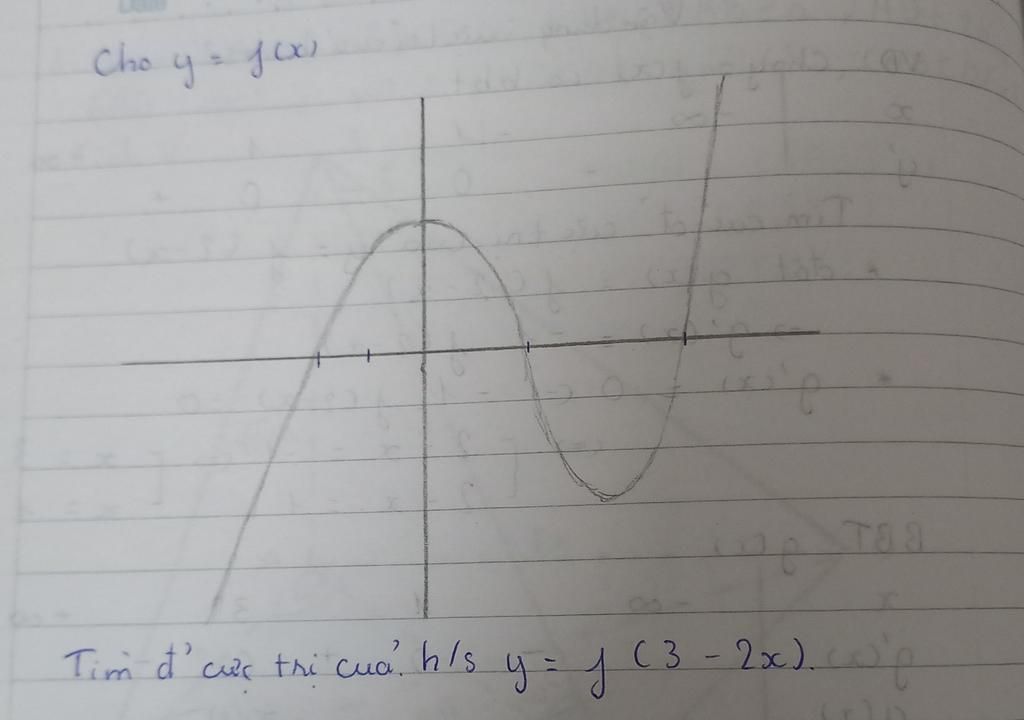 Cho y = f(x)
Tìm đ' cực trị của h/s y = f (3 - 2x).